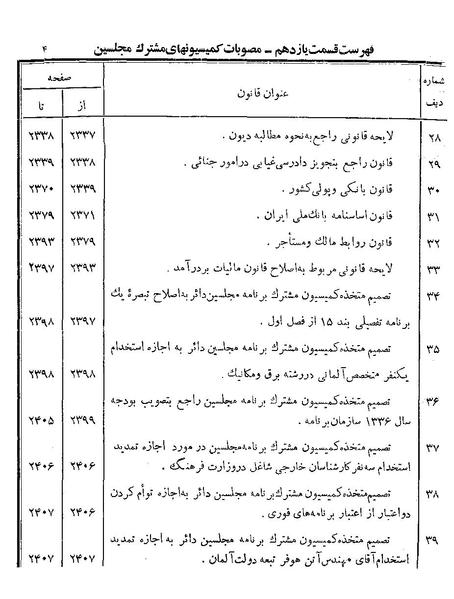 فهرست قسمت یازدهم ــ مصوبات کمیسیونهای مشترك مجلسین ۴
شماره ردیف عنوان قانون صفحه
از تا
۲۸ لایحه قانونی راجع به نحوه مطالبه دیون . ۲۳۳۷ ۲۳۳۸
۲۹ قانون راجع بتجویز دادرسی غیابی درامور جنائی . ۲۳۳۸ ۲۳۳۹
۳۰ قانون بانکی وپولی کشور . ۲۳۳۹ ۲۳۷۰
۳۱ قانون اساسنامه بانك ملی ایران . ۲۳۷۱ ۲۳۷۹
۳۲ قانون روابط مالك ومستأجر . ۲۳۷۹ ۲۳۹۳
۳۳ لایحه قانونی مربوط به اصلاح قانون مالیات بردرآمد . ۲۳۹۳ ۲۳۹۷
۳۴ تصمیم متخذه کمیسیون مشترك برنامه مجلسین دائر به اصلاح تبصرۀ یك
برنامه تفصیلی بند ۱۵ از فصل اول . ۲۳۹۷ ۲۳۹۸
۳۵ تصمیم متخذه کمیسیون مشترك برنامه مجلسین دائر به اجازه استخدام
یکنفر متخصص آلمانی دررشته برق ومکانیك . ۲۳۹۸ ۲۳۹۸
۳۶ تصمیم متخذه کمیسیون مشترك برنامه مجلسین راجع بتصویب بودجه
سال ۱۳۳۶ سازمان برنامه . ۲۳۹۹ ۲۴۰۵
۳۷ تصمیم متخذه کمیسیون مشترك برنامه مجلسین در مورد اجازه تمدید
استخدام سه نفر کارشناسان خارجی شاغل دروزارت فرهنگ . ۲۴۰۶ ۲۴۰۶
۳۸ تصمیم متخذه کمیسیون مشترك برنامه مجلسین دائر به اجازه توأم کردن
دواعتبار از اعتبار برنامه‌های فوری . ۲۴۰۶ ۲۴۰۷
۳۹ تصمیم متخذه کمیسیون مشترك برنامه مجلسین دائر به اجازه تمدید
استخدام آقای مهندس آنتن هوفر تبعه دولت آلمان . ۲۴۰۷ ۲۴۰۷